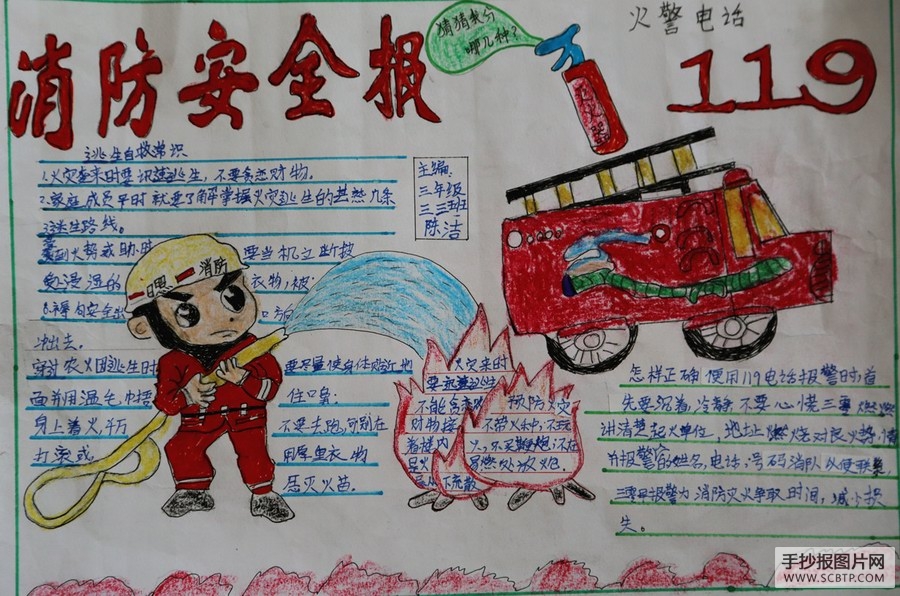 消防安全报
猜猜我分
哪几种？
火警电话
119
灭火器
逃生自救常识
1.火灾袭来时要迅速逃生，不要贪恋财物。
2.家庭成员平时就要了解掌握火灾逃生的基然几条
逃生路线。
受到火势威胁时 要当机立断披
衣物，被
冲出去。
穿过浓火团逃生时 要尽量使身体贴近地
面并用湿毛巾捂 住口鼻。
身上着火，千万 不要去跑，可到在
打滚或 用厚重衣物
压灭火苗。
主编：
三年级
三三班
陈洁
日照 消防
火灾来时
要迅速逃生
不能贪恋
财物
预防火灾
不带火种，不玩
火，不买鞭炮，不在
易燃处放火炮。
怎样正确使用119电话报警时：首
先要沉着，冷静不要心慌三事燃烧
讲清楚起火单位，地址燃烧对良火势情
并报警官的姓名，电话，号码消队以便联系
三零早报警力消防灭火争取时间，减少损
失。
手抄报图片网
WWW.SCBTP.COM